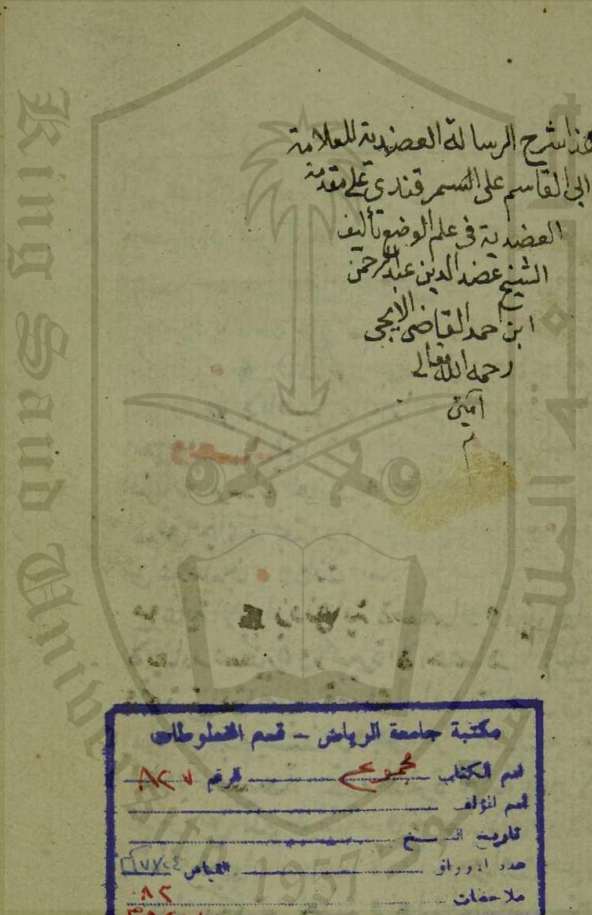 هذا شرح الرسالة العضدية للعلامة
ابى القاسم على السمرقندى على مقدمة
العضدية فى علم الوضع تأليف
الشيخ عضد الدين عبد الرحمن
ابن احمد القاضى الايجى
رحمه الله تعالى
امين
م
King Saud University
1957
مكتبة جامعة الرياض - قسم المخطوطات
اسم الكتاب مجموع الرقم ٨٢٧
اسم المؤلف
تاريخ النسخ
عدد الاوراق القياس
ملاحظات